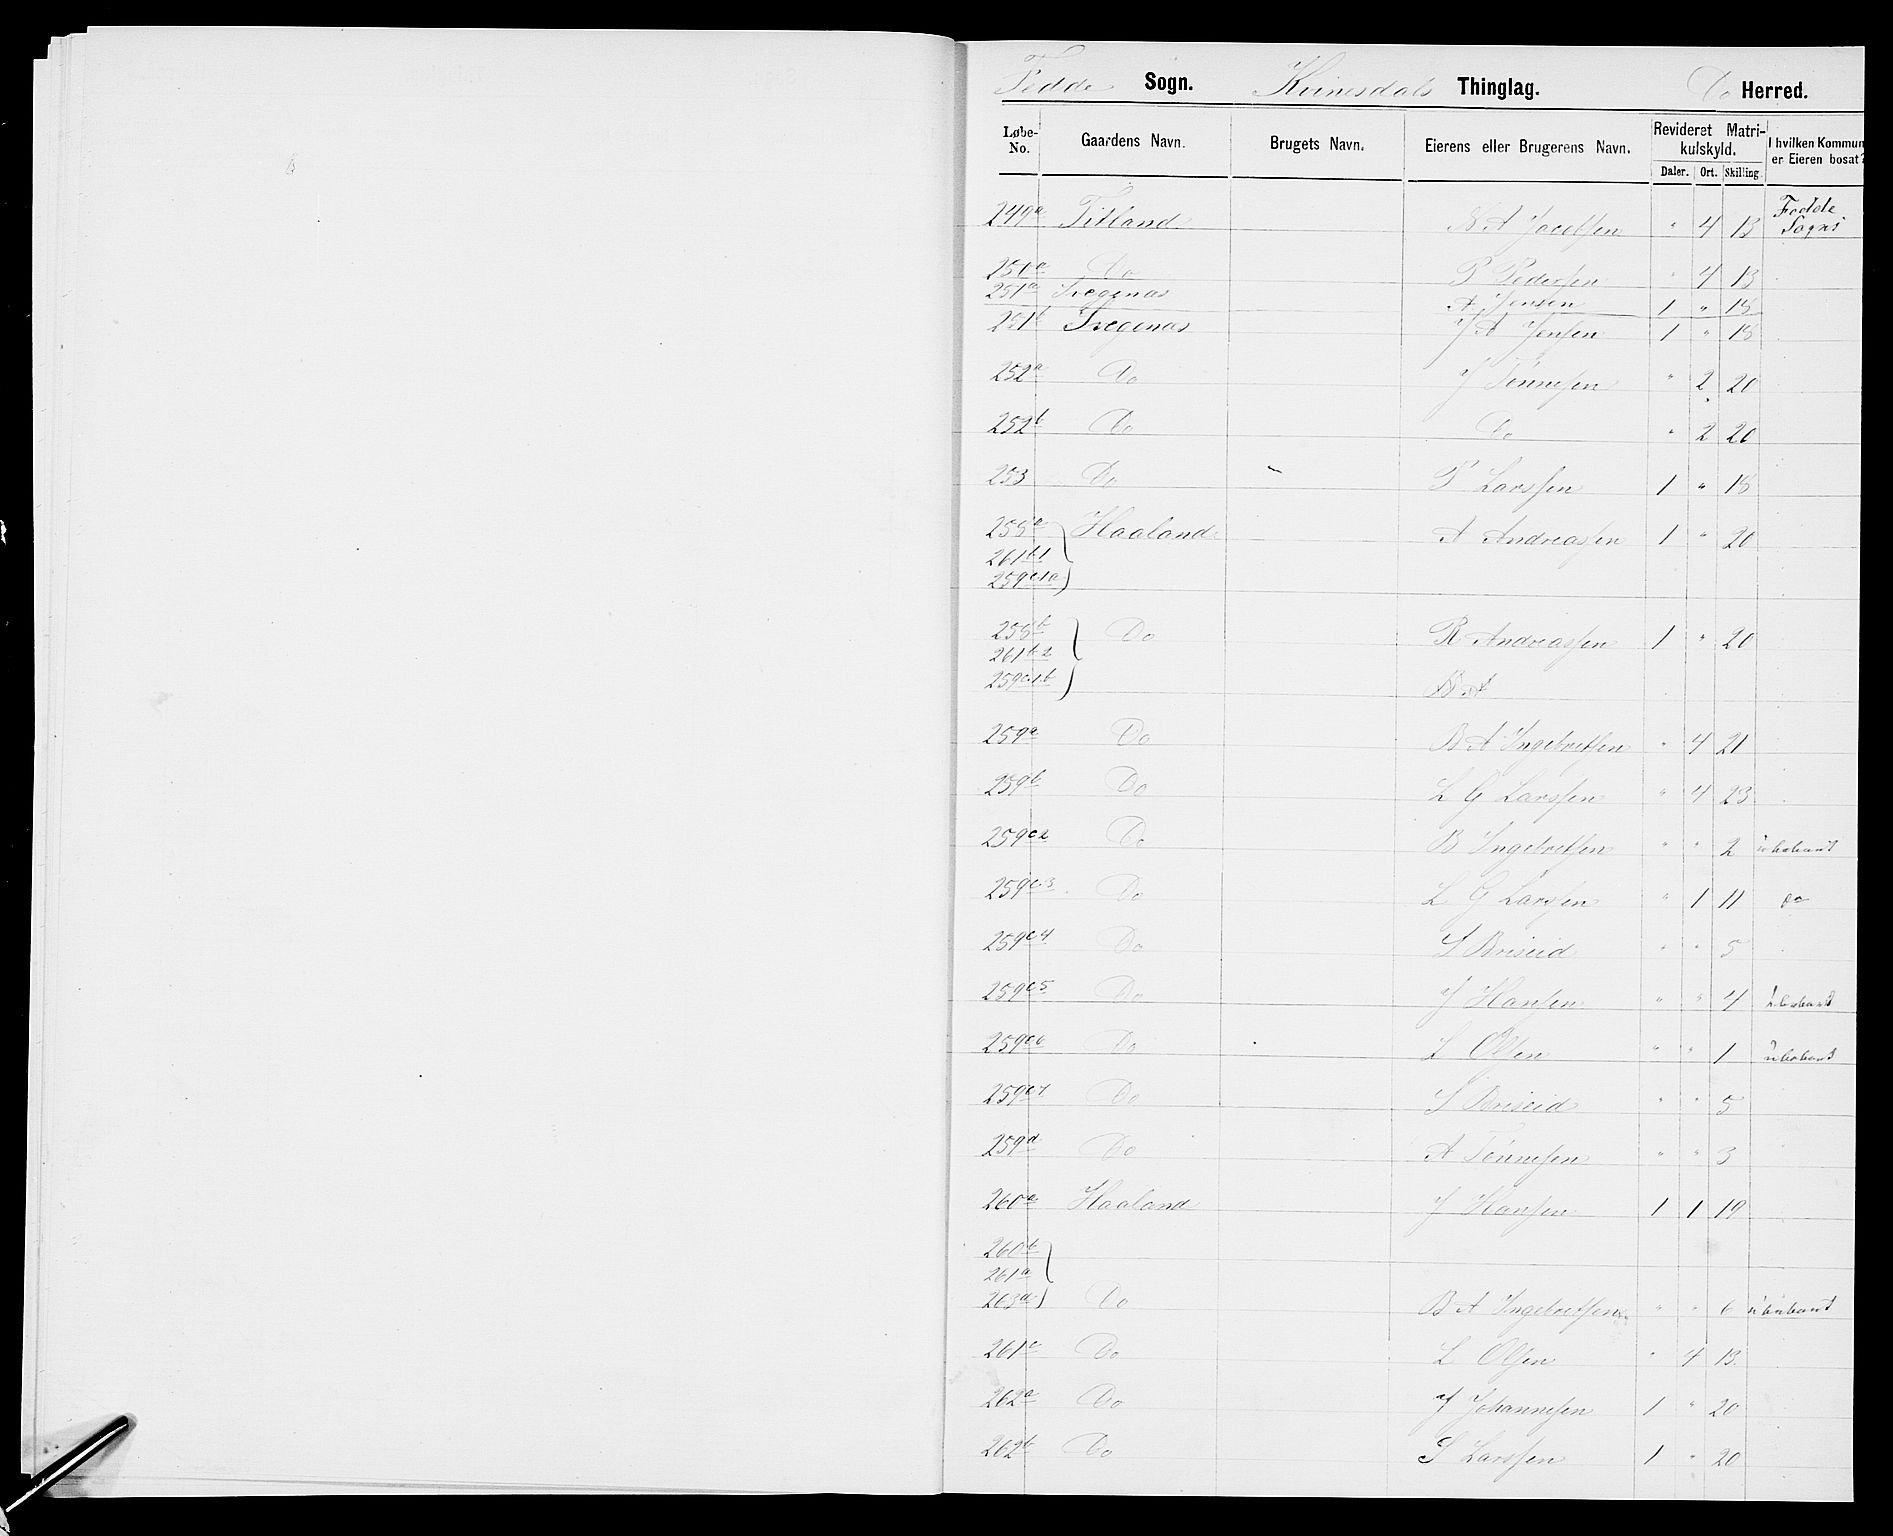 Fedde Sogn. Kvinesdals Thinglag. Do Herred.
Løbe-No. Gaardens Navn. Brugets Navn. Eierens eller Brugerens Navn. Revideret Matrikulskyld. Daler. Ort. Skilling. I hvilken Kommun er Eieren bosat?
249a Titland N A Jacobsen " 4 13 Fedde Sogns
250a Do P Pedersen " 4 13
251a Trægenas A Jensen 1 " 18
251b Trægenas J A Jensen 1 " 18
252a Do J Tønnesen " 2 20
252b Do Do " 2 20
253 Do P Larssen 1 " 18
255a Haaland A Andreassen 1 " 20
261b1
259c1a
255b Do R Andreassen 1 " 20
261b2
259c1b
259a Do B A Ingebretsen " 4 21
259b Do L G Larssen " 4 23
259c2 Do B Ingebretsen " " 2 ubebant
259c3 Do L G Larssen " 1 11 Do
259c4 Do S Briseid " " 5
259c5 Do J Hansen " " 4 ubebant
259c6 Do L Olsen " " 1 ubebant
259c7 Do S Briseid " " 5
259d Do A Tønnesen " " 3
260a Haaland J Hansen 1 1 19
260b
261a
263a Do B A Ingebretsen " " 6 ubebant
261c Do L Olsen " 4 13
262a Do J Johannesen 1 " 20
262b Do S Larssen 1 " 20